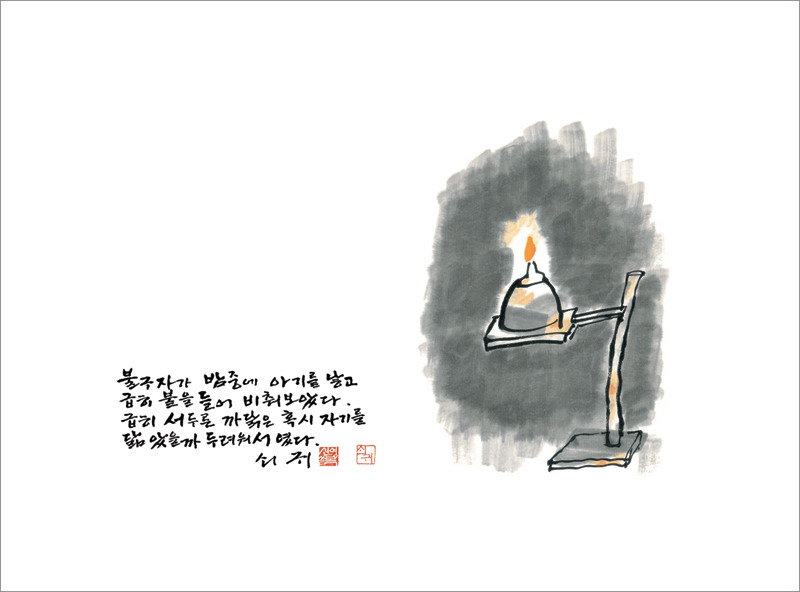 불구자가 밤중에 아기를 낳고
급히 불을 들어 비춰보았다.
급히 서두른 까닭은 혹시 자기를
닮았을까 두려워서였다.
쇠귀